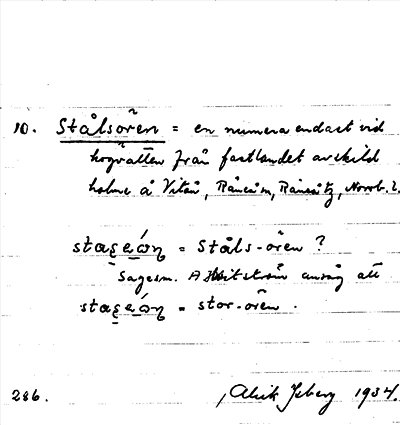 10. Stålsören = en numera endast vid
högvatten från fastlandet avskild
holme å Vitån, Råneåm, Råneåtz, Norrb. l.
= Ståls-ören?
Sagesm. A Hvitström ansåg att
= stor-ören.
286. Alrik Isberg 1934.